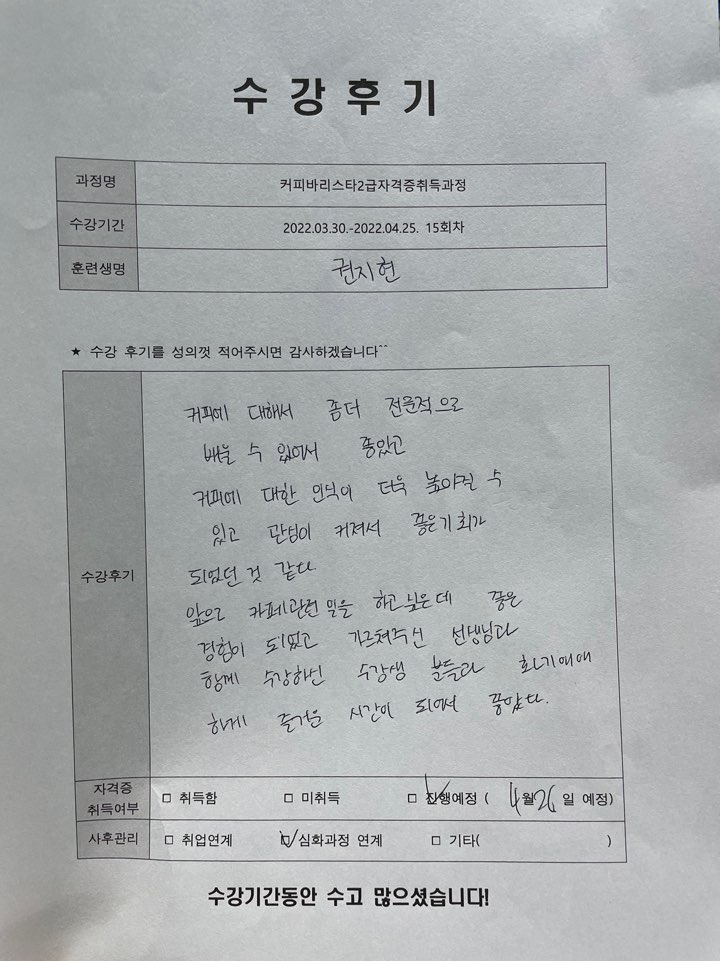 수 강 후 기
과정명 커피바리스타2급자격증취득과정
수강기간 2022.03.30.-2022.04.25. 15회차
훈련생명 권지현
★ 수강 후기를 성의껏 적어주시면 감사하겠습니다^^
수강후기
커피에 대해서 좀더 전문적으로
배울 수 있어서 좋았고
커피에 대한 인식이 더욱 높아질 수
있고 관심이 커져서 좋은기회가
되었던것 같다.
앞으로 카페관련일을 하고싶은데 좋은
경험이 되었고 가르쳐주신 선생님과
함께 수강하신 수강생 분들과 화기애애
하게 즐거운 시간이 되어서 좋았다.
자격증
취득여부 □ 취득함 □ 미취득 □ 진행예정 ( 4월26일 예정)
사후관리 □ 취업연계 ☑ 심화과정 연계 □ 기타( )
수강기간동안 수고 많으셨습니다!